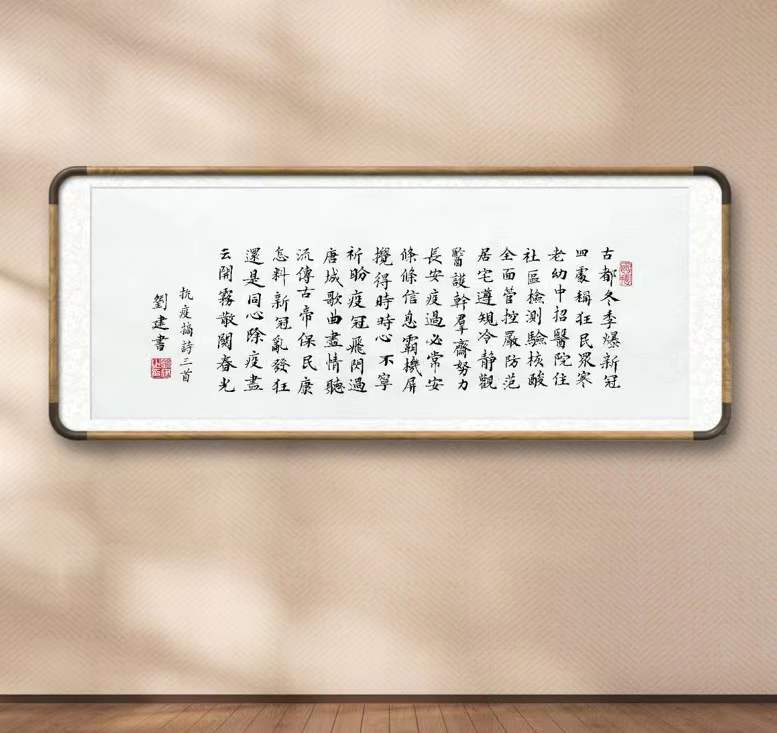 古都冬季爆新冠
四處稱狂民眾寒
老幼中招醫院住
社區檢測驗核酸
全面管控嚴防范
居宅遵規冷靜觀
醫護幹羣齊努力
長安疫過必常安
條條信息霸機屏
攪得時時心不寧
祈盼疫冠飛閃過
唐城歌曲盡情聽
流傳古帝保民康
怎料新冠亂發狂
還是同心除疫盡
云開霧散春光
抗疫詩三首
劉建書